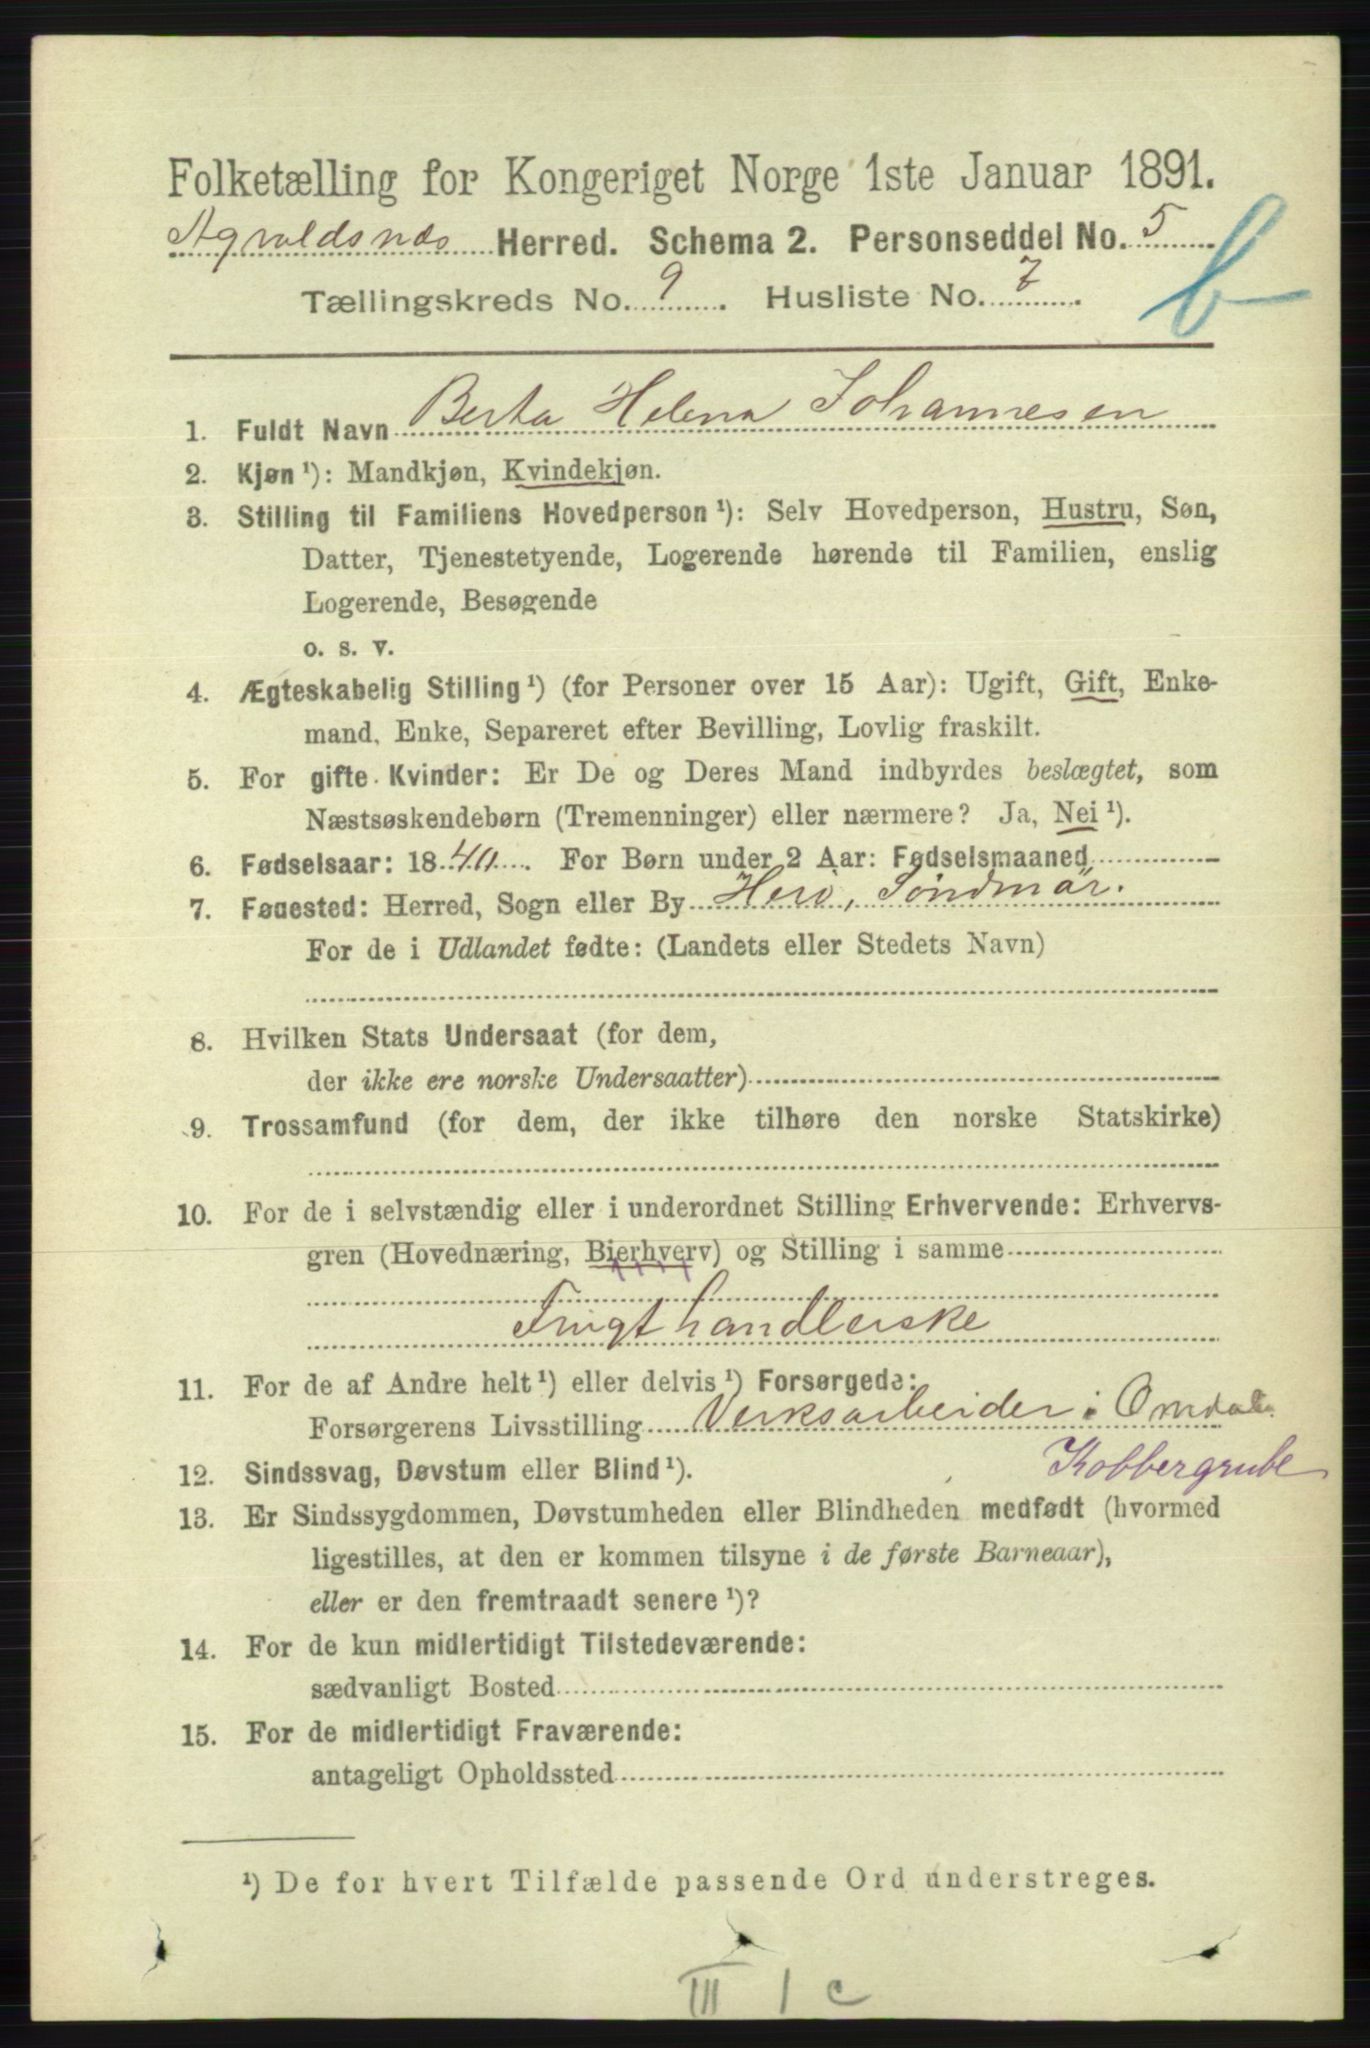 Folketælling for Kongeriget Norge 1ste Januar 1891.
Agvaldsnæs Herred. Schema 2. Personseddel No. 5
Tællingskreds No. 9. Husliste No. 7.
b
1. Fuldt Navn Berta Helena Johannesen
2. Kjøn ¹): Mandkjøn, Kvindekjøn.
3. Stilling til Familiens Hovedperson ¹): Selv Hovedperson, Hustru, Søn,
Datter, Tjenestetyende, Logerende hørende til Familien, enslig
Logerende, Besøgende
o. s. v.
4. Ægteskabelig Stilling ¹) (for Personer over 15 Aar): Ugift, Gift, Enke-
mand, Enke, Separeret efter Bevilling, Lovlig fraskilt.
5. For gifte Kvinder: Er De og Deres Mand indbyrdes beslægtet, som
Næstsøskendebørn (Tremenninger) eller nærmere? Ja, Nei ¹).
6. Fødselsaar: 1840. For Børn under 2 Aar: Fødselsmaaned
7. Fødested: Herred, Sogn eller By Herö, Söndmör.
For de i Udlandet fødte: (Landets eller Stedets Navn)
8. Hvilken Stats Undersaat (for dem,
der ikke ere norske Undersaatter)
9. Trossamfund (for dem, der ikke tilhøre den norske Statskirke)
10. For de i selvstændig eller i underordnet Stilling Erhvervende: Erhvervs-
gren (Hovednæring, Bierhverv) og Stilling i samme
Frugthandlerske
11. For de af Andre helt ¹) eller delvis ¹) Forsørgede:
Forsørgerens Livsstilling Verksarbeider i Omdals
Kobbergrube
12. Sindssvag, Døvstum eller Blind ¹).
13. Er Sindssygdommen, Døvstumheden eller Blindheden medfødt (hvormed
ligestilles, at den er kommen tilsyne i de første Barneaar),
eller er den fremtraadt senere ¹)?
14. For de kun midlertidigt Tilstedeværende:
sædvanligt Bosted
15. For de midlertidigt Fraværende:
antageligt Opholdssted
¹) De for hvert Tilfælde passende Ord understreges.
III 1 c